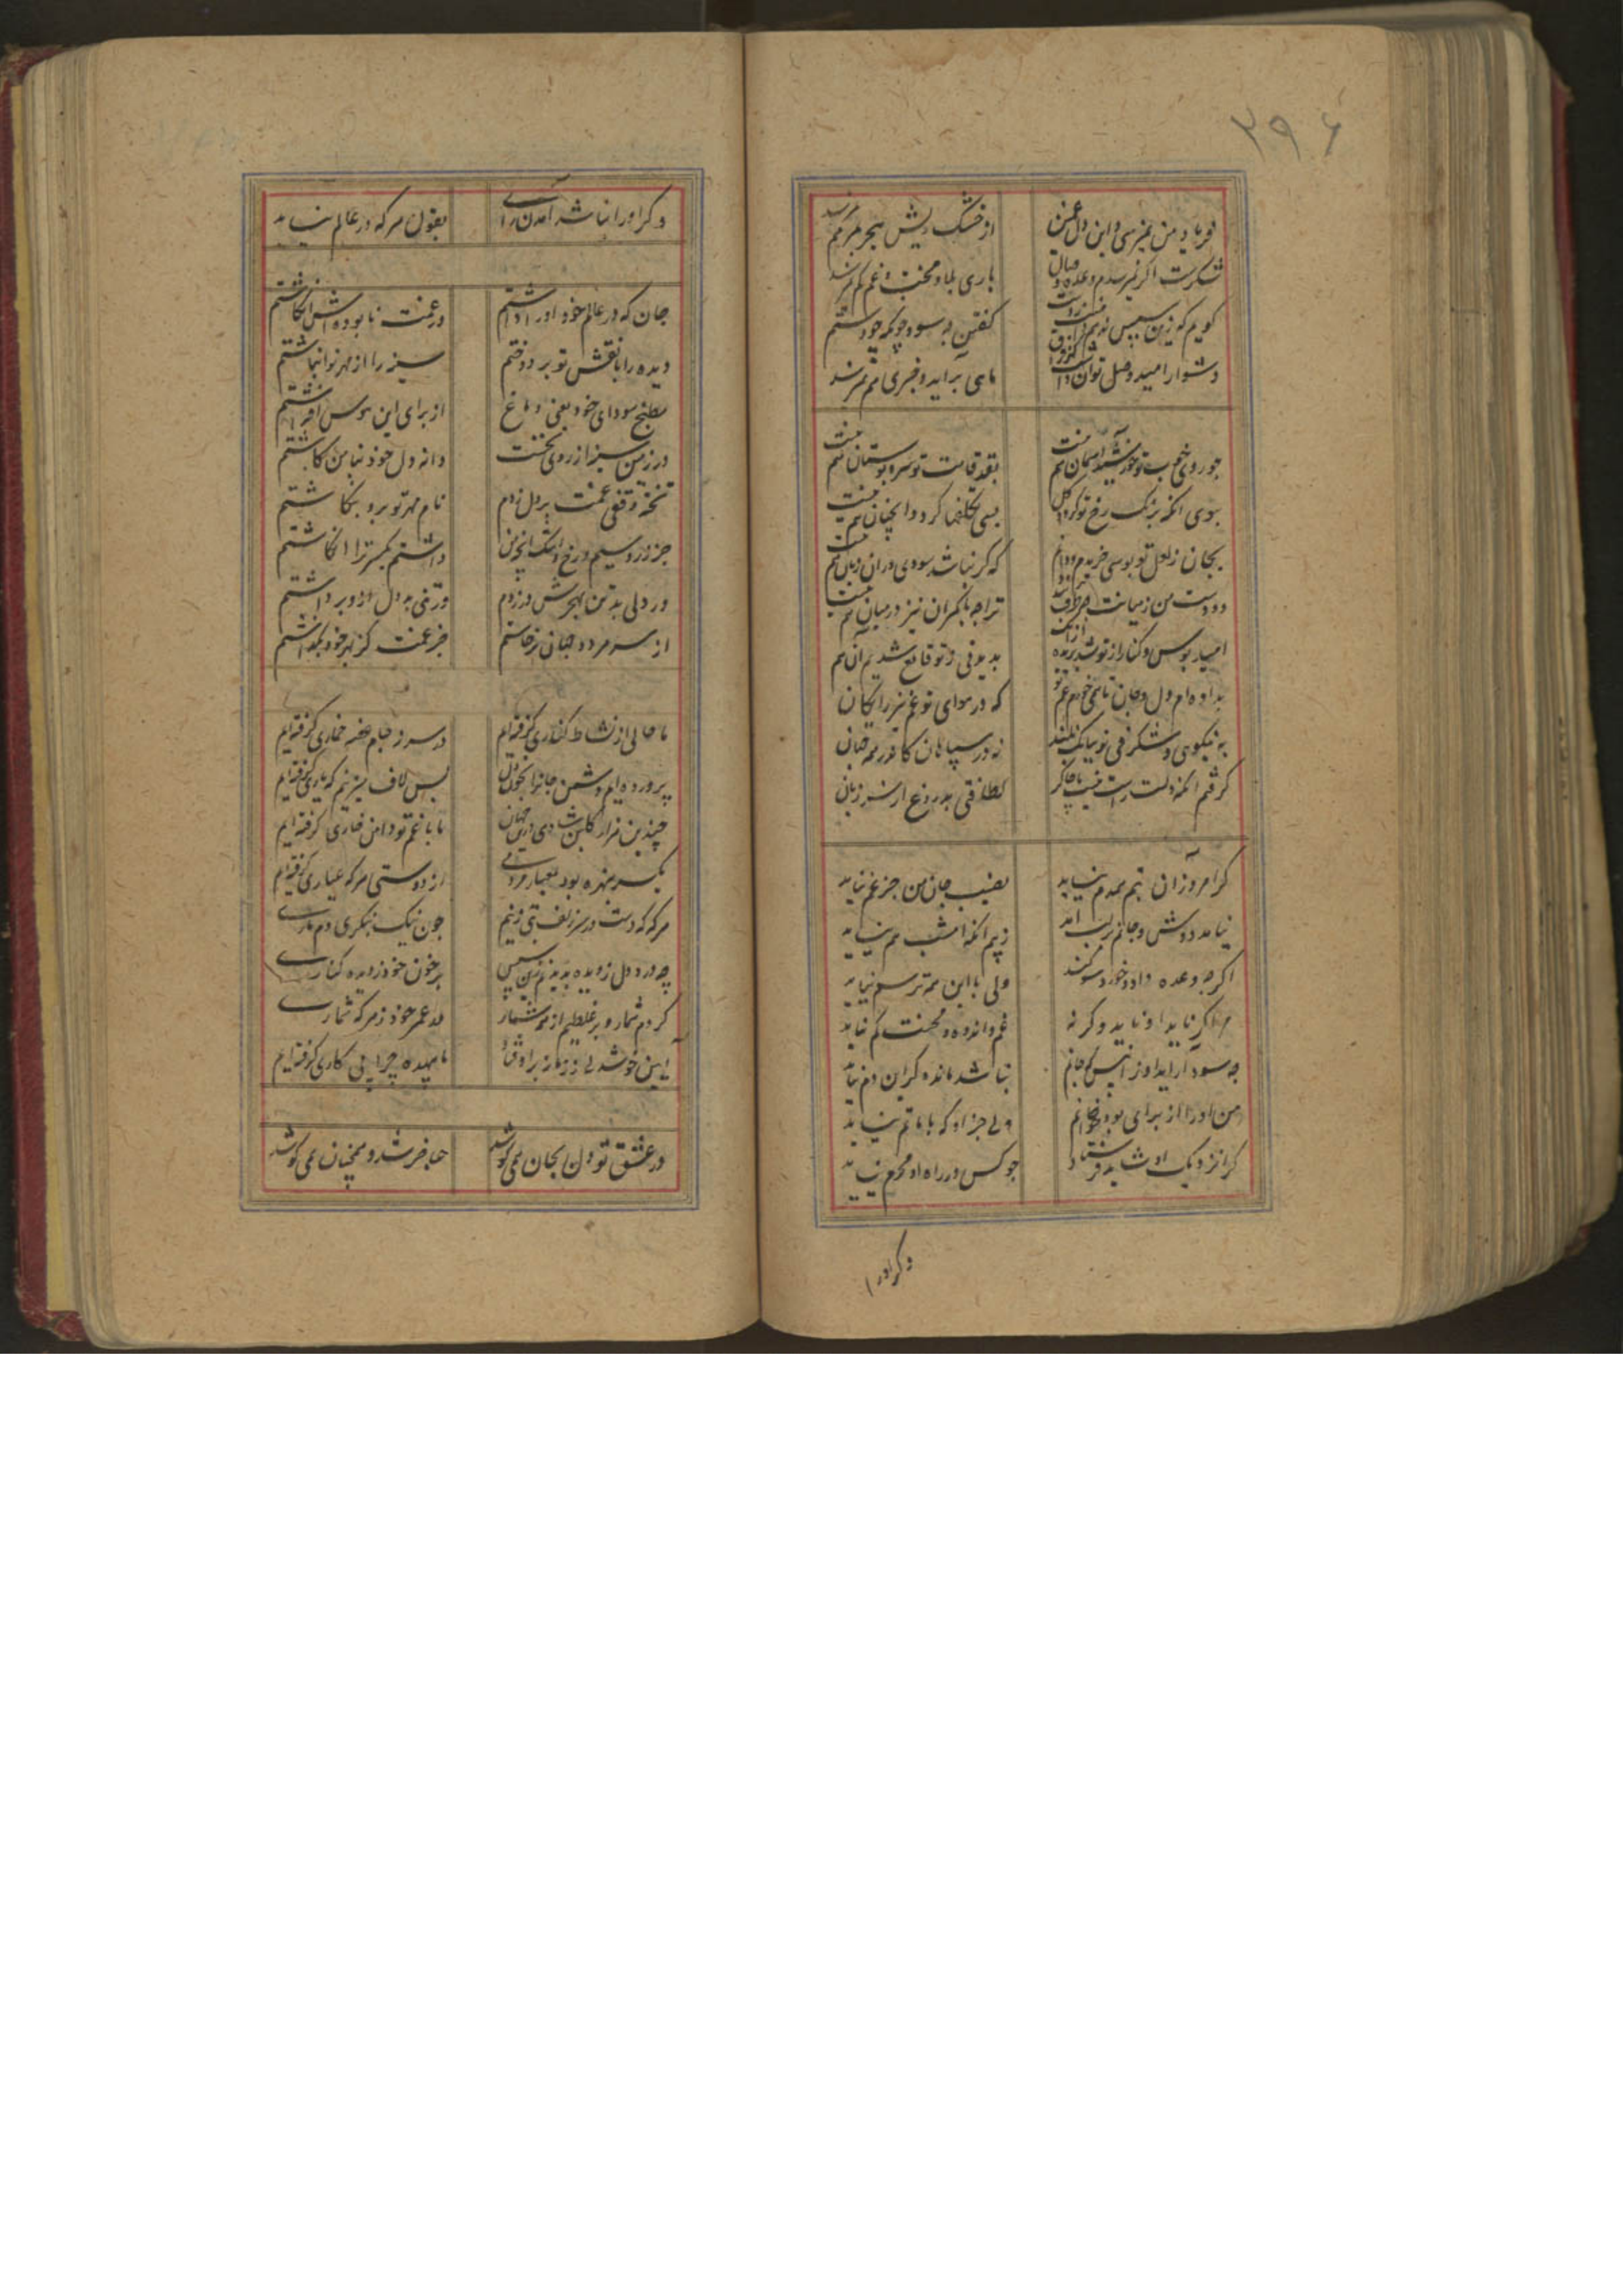 ۳۹۶
فریاد من نمیرسی و این دل غمین
از خشک ریش هجر بمرهم نمیرسد
شکرست اگر نمیرسدم وعده وصال
باری بلا و محنت و غم کم نمیرسد
کویم که زین سپس
کفتن چه سود چونکه خود
دشوار امید وصل توان داشت
ماهی برآید و خبری هم نمیرسد
چو روی خوب تو خورشید آسمان هم نیست
بقد قامت تو سرو بوستان هم نیست
بسی تکلفها کرد و آنچنان هم نیست
بجان ز لعل تو بوسی خریدم و دادم
که کر نباشد سودی در آن زیان هم نیست
دو دست من ز میانت
ترا چه با کمران نیز در میان هم نیست
امید بوس و کنار از تو شد بریده
بدیدنی ز تو قانع شدیم آن هم
بداده ام دل و جان تا همی خورم غم تو
که در هوای تو غم نیز رایکان
به نیکویی و شکرفی تو
نه در سپاهان
کرفتم انکه دلت راست نیست با چاکر
بدروغ از سر زبان
کر امروز آن بتم همدم نیاید
نصیب جان من جز غم نیاید
نیامد دوش و جانم بر لب آمد
ز بیم آنکه امشب هم نیاید
اکرچه وعده داد و خورد سوکند
ولی با این همه ترسم نیاید
مرا کر ناید او ناید وکرنه
غم و اندوه و محنت کم نیاید
چه سود آر آید او از پس که جانم
نباشد مانده کر این دم نیاید
من او را از برای بوسه خوانم
ولی جز او که با ماتم نیاید
کرا نزدیک او شاید فرستاد
چو کس در راه او محرم نیاید
وکر او را
وکر او را نباشد آمدن رای
بقول هر که در عالم نیاید
جان که در عالم خود او را داشتم
در غمت نابوده اش انکاشتم
دیده را با نقش تو بر دوختم
سینه را از مهر تو انباشتم
مطبخ سودای خود یعنی دماغ
از برای این هوس افراشتم
در زمین سینه از روی نخست
دانه دل خود نیامن کاشتم
تخته وقفی غمت بر دل زدم
نام مهر تو برو بنکاشتم
جز زر و سیم رخ و اشک
داشتم یکسر ترا انکاشتم
ور دلی بد تن بهجرش در زدم
ور تنی بد دل ازو برداشتم
از سر هر دو جهان برخاستم
جز غمت کز بهر خود بکذاشتم
ما حالی از نشاط کناری کرفته ایم
در سر ز جام غصه خماری کرفته ایم
پرورده ایم دشمن جانرا بخون دل
پس لاف میزنیم که یاری کرفته ایم
چندین هزار کلبن شادی درین جهان
ما با غم تو دامن خاری کرفته ایم
یکسر بهره بود بمعیار مردمی
از دوستی هر که عیاری کرفته ایم
هر که که دست در سر زلف بتی زنیم
چون نیک بنکری دم ماری
چه درد دل ز دیده بدیدیم زین سپس
بر خون خود ز دیده کناری
کردم شمار و بر غلطیم از همه شمار
بر عمر خود ز هر که شماری
آیین خوشدلی ز زمانه بر اوفتاد
ما بیهده چرا پی کاری کرفته ایم
در عشق تو دل بجان همی کوشد
عاجز شد و همچنان همی کوشد